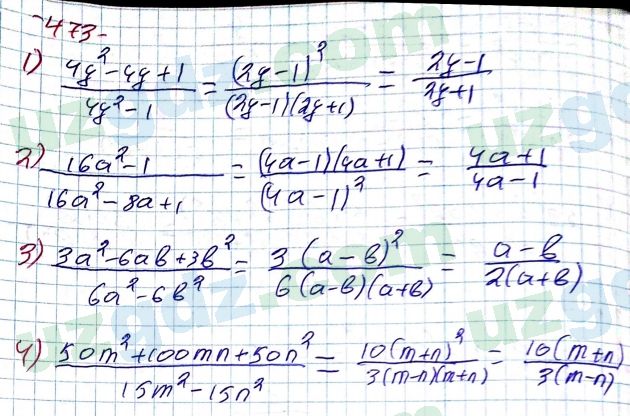 -473-
1) (4y²-4y+1)/(4y²-1) = (2y-1)²/((2y-1)(2y+1)) = (2y-1)/(2y+1)
2) (16a²-1)/(16a²-8a+1) = ((4a-1)(4a+1))/(4a-1)² = (4a+1)/(4a-1)
3) (3a²-6aв+3в²)/(6a²-6в²) = 3(a-в)²/(6(a-в)(a+в)) = (a-в)/(2(a+в))
4) (50m²+100mn+50n²)/(15m²-15n²) = 10(m+n)²/(3(m-n)(m+n)) = 10(m+n)/(3(m-n))